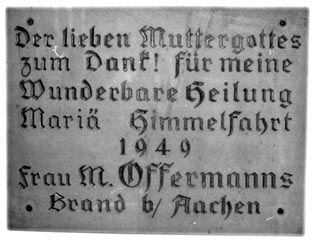 Der lieben Muttergottes
zum Dank! für meine
Wunderbare Heilung
Mariä Himmelfahrt
1949
Frau M. Offermanns
Brand b/ Aachen